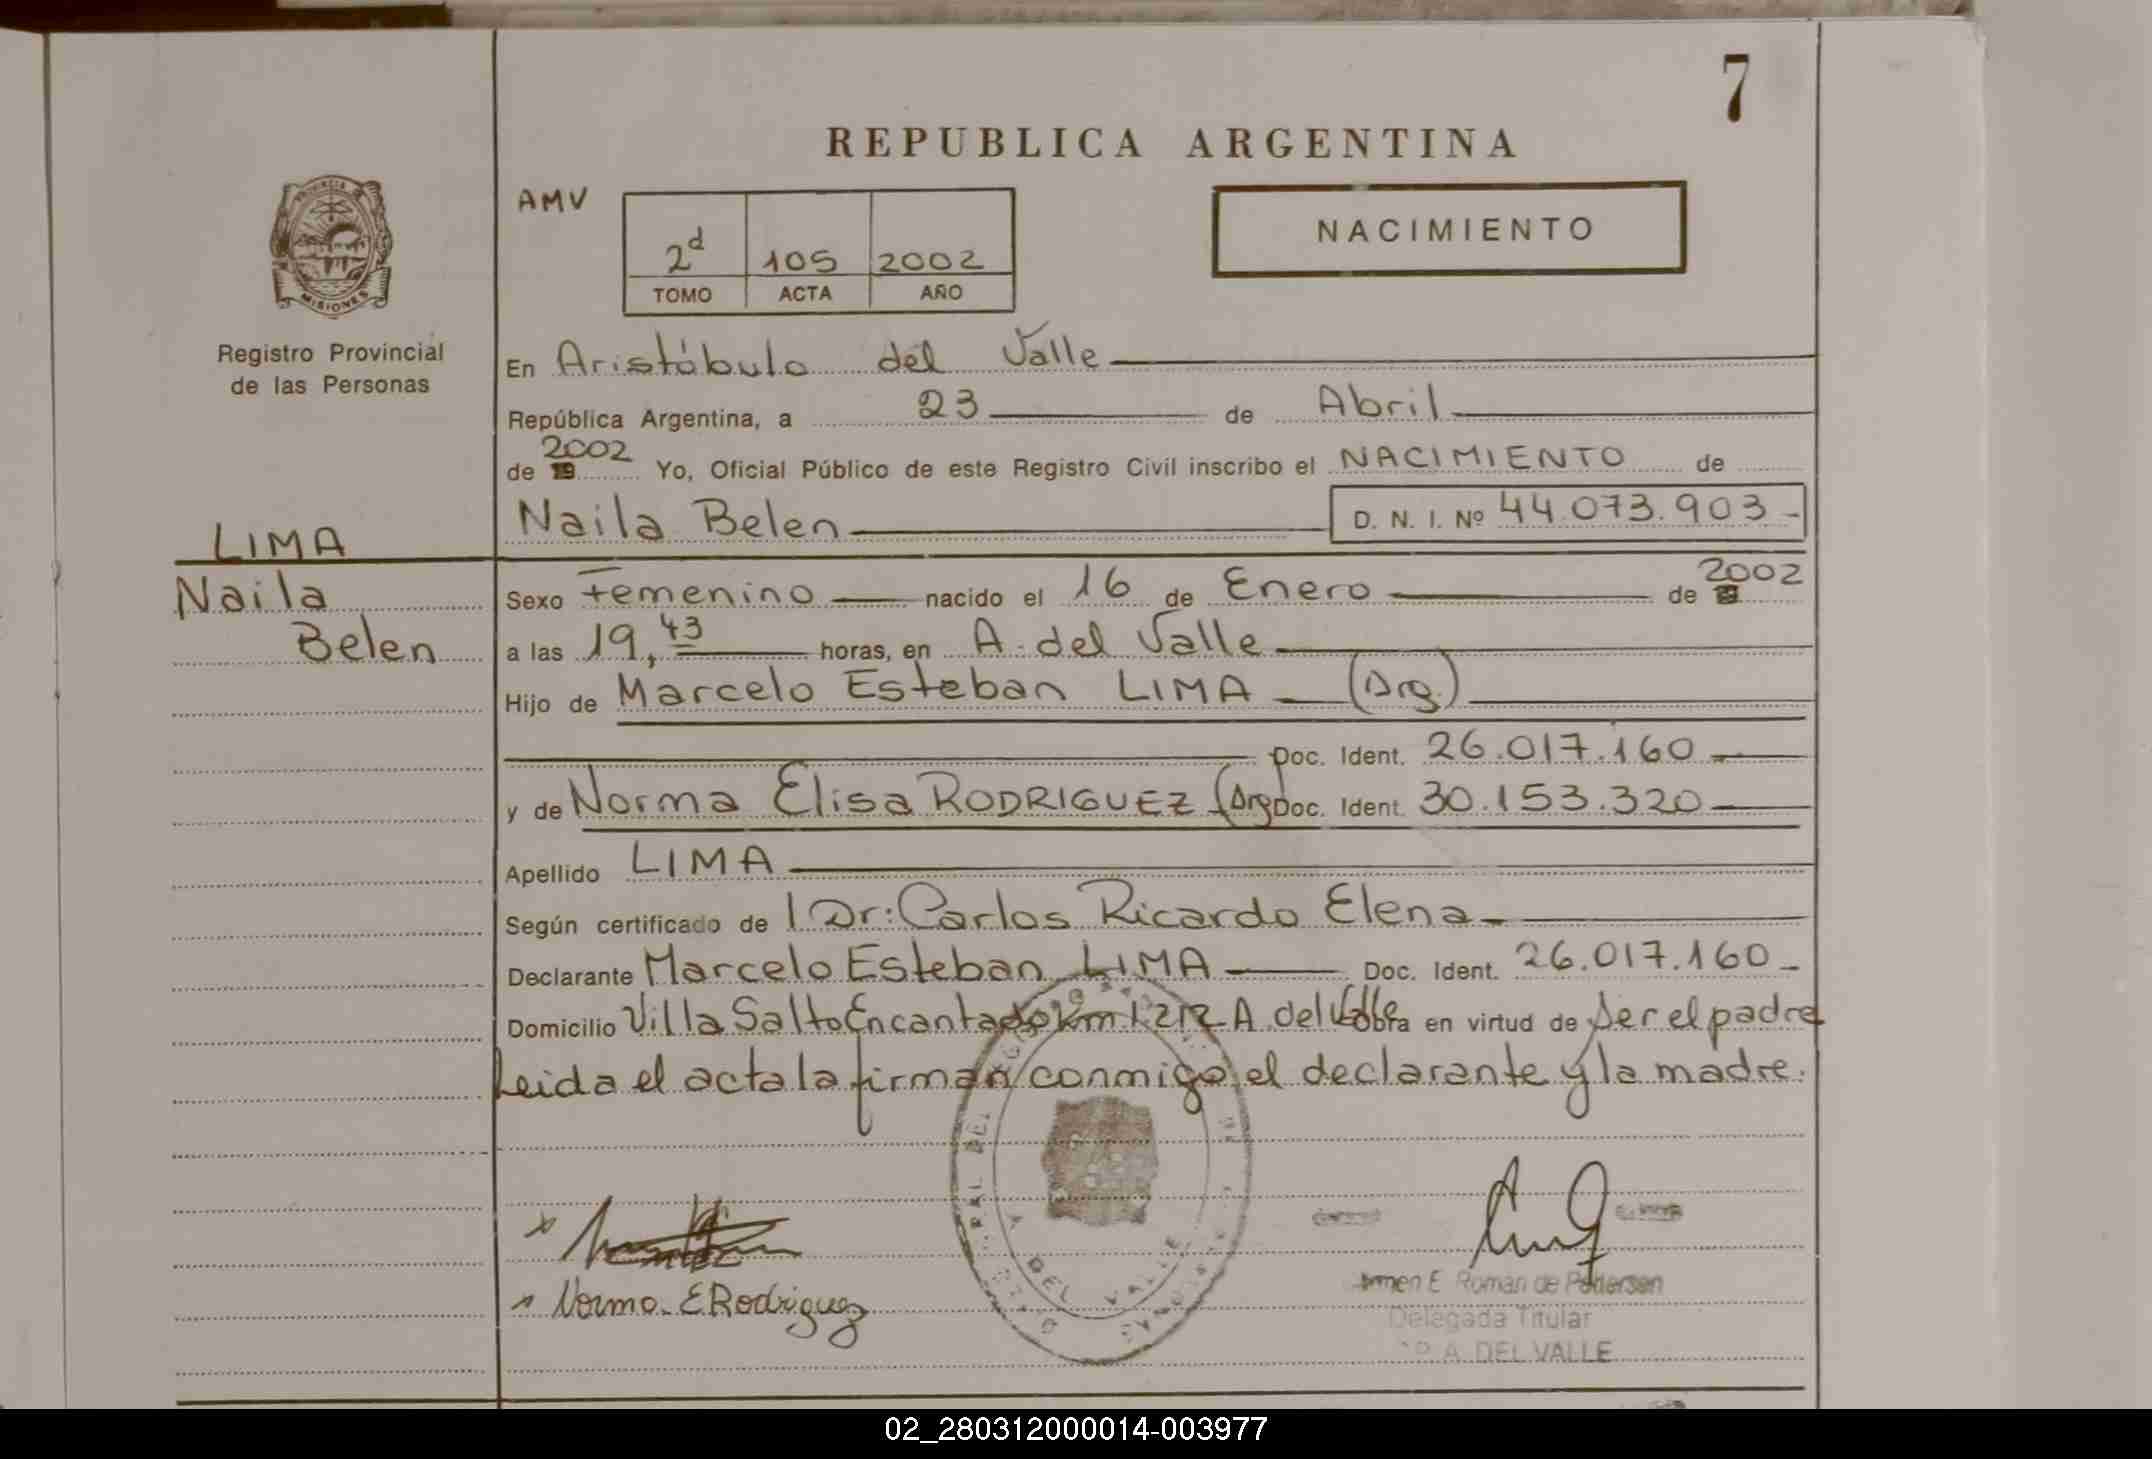 7
REPUBLICA ARGENTINA
AMV
NACIMIENTO
2d 105 2002
TOMO ACTA AÑO
PROVINCIA MISIONES
Registro Provincial
de las Personas
En Aristóbulo del Valle
República Argentina, a 23 de Abril
de 19 2002 Yo, Oficial Público de este Registro Civil inscribo el NACIMIENTO de
Naila Belen D. N. I. Nº 44.073.903-
LIMA
Naila
Belen
Sexo Femenino nacido el 16 de Enero de 2002
a las 19,43 horas, en A. del Valle
Hijo de Marcelo Esteban LIMA (Arg.)
Doc. Ident. 26.017.160
y de Norma Elisa RODRIGUEZ (Arg Doc. Ident. 30.153.320
Apellido LIMA
Según certificado de Dr: Carlos Ricardo Elena
Declarante Marcelo Esteban LIMA Doc. Ident. 26.017.160-
Domicilio Villa Salto Encantado Km 1212 A. del Valle Obra en virtud de ser el padre
Leida el acta la firman conmigo el declarante y la madre.
A DEL VALLE
MISIONES
Norma E Rodriguez
E. Roman de Pedersen
Delegada Titular
A. DEL VALLE
02_280312000014-003977